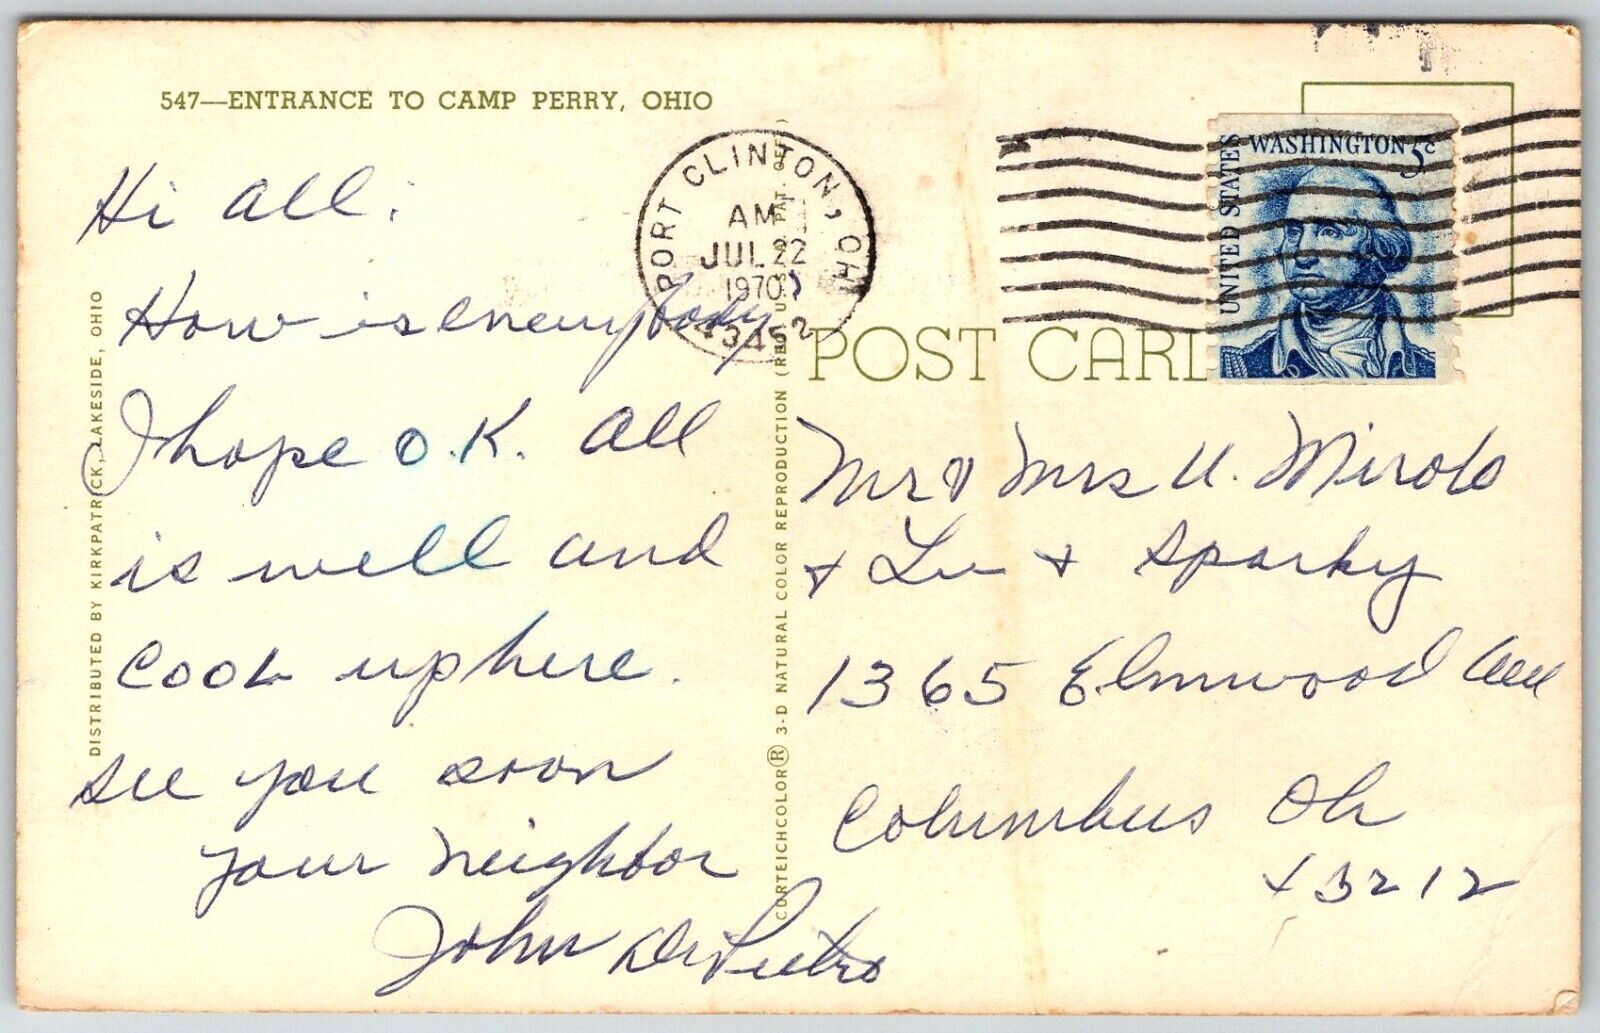 547—ENTRANCE TO CAMP PERRY, OHIO
Hi all:
How is everybody
I hope O.K. all
is well and
cool up here.
see you soon
your neighbor
John DiPietro
DISTRIBUTED BY KIRKPATRICK, LAKESIDE, OHIO
CURTEICHCOLOR® 3-D NATURAL COLOR REPRODUCTION (REG. U.S.A. PAT. OFF.)
PORT CLINTON, OHI
AM
JUL 22
1970
43452
UNITED STATES
WASHINGTON 5c
POST CARD
Mr & Mrs U.
& Lu & Sparky
1365 Elmwood Ave
Columbus Oh
43212